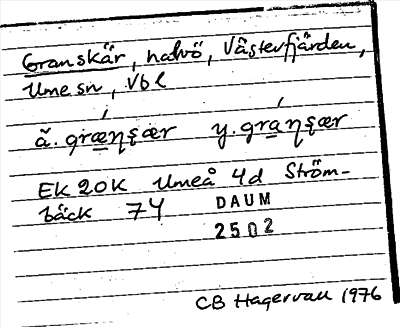 Granskär, halvö, Västerfjärden,
Umesn, Vbl
ǎ. græṇʂær y. graṇʂær
EK 20K Umeå 4d Ström-
bäck 74 DAUM
2502
CB Hagervall 1976